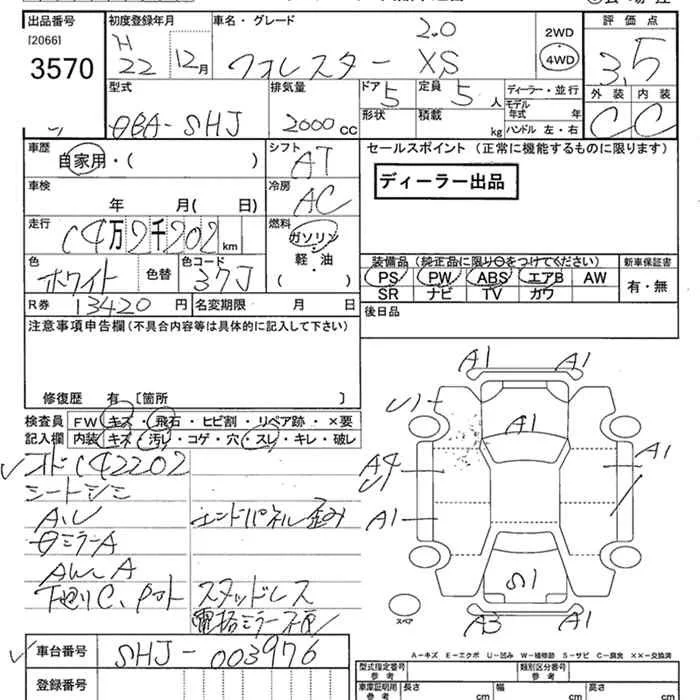 出品番号 初度登録年月 車名・グレード 評価点
[2066] 3570
H 22 12月 フォレスター 2.0 XS 2WD ・ 4WD 3.5
外装 内装
C C
型式 排気量 ドア 定員 ディーラー・並行
DBA-SHJ 2000cc 5 5人 モデル年式 年
形状 積載 kg ハンドル 左・右
車歴 シフト セールスポイント (正常に機能するものに限ります)
自家用・( ) AT
ディーラー出品
車検 冷房
年 月( 日) AC
走行 燃料
(4万2千202km ガソリン・軽・油 ( )
色 色替 色コード
ホワイト 37J
装備品 (純正品に限り○をつけてください) 新車保証書
PS PW ABS エアB AW 有・無
SR ナビ TV カワ
R券 13420円 名変期限 月 日 後日品
注意事項申告欄 (不具合内容等は具体的に記入して下さい)
修復歴 有 [箇所 ]
検査員 FW キズ・飛石・ヒビ割・リペア跡・×要
記入欄 内装 キズ・汚レ・コゲ・穴・スレ・キレ・破レ
オド(42202
シートシミ
A.U エンドパネル歪み
ミラーA
AWA
下廻りC、 スタッドレス
電格ミラー不
A1 A1
U1 A1
A4 A1
U
A1
S1
A3 A1
スペア
A-キズ E-エクボ U-凹み W-補修跡 S-サビ C-腐食 ××-交換済
車台番号 SHJ-003976
登録番号
型式指定番号 参考 類別区分番号 参考
車庫証明用 参考 長さ cm 幅 cm 高さ cm